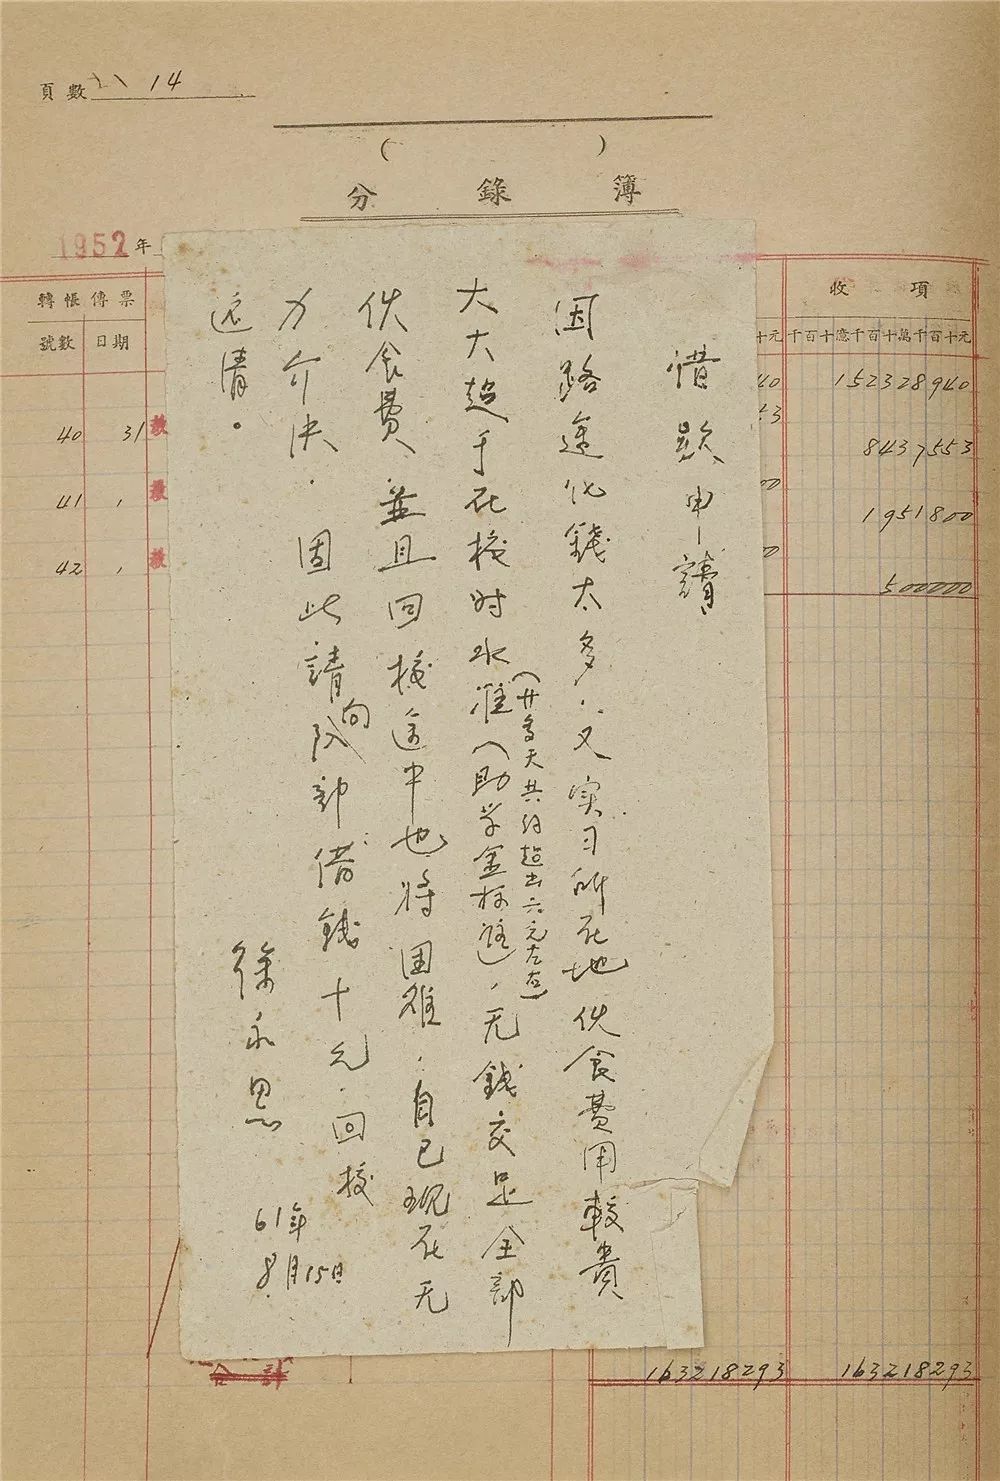 頁數 14
(     )
分錄簿
1952年
轉帳傳票
號數 日期
40 31
41
42
收項
十元
千百十億千百十萬千百十元
152328940
8437553
1951800
500000
163218293
163218293
借款申請
因路途化錢太多，又实习所在地伙食費用較貴
(廿多天共約超出六元左右)
大大超于在校时水准（助学金标准），无錢交足全部
伙食費，並且回校途中也将困难，自己现在无
力介决。固此請向队部借錢十元。回校
还清。
徐永思
61年
8月15日
合計